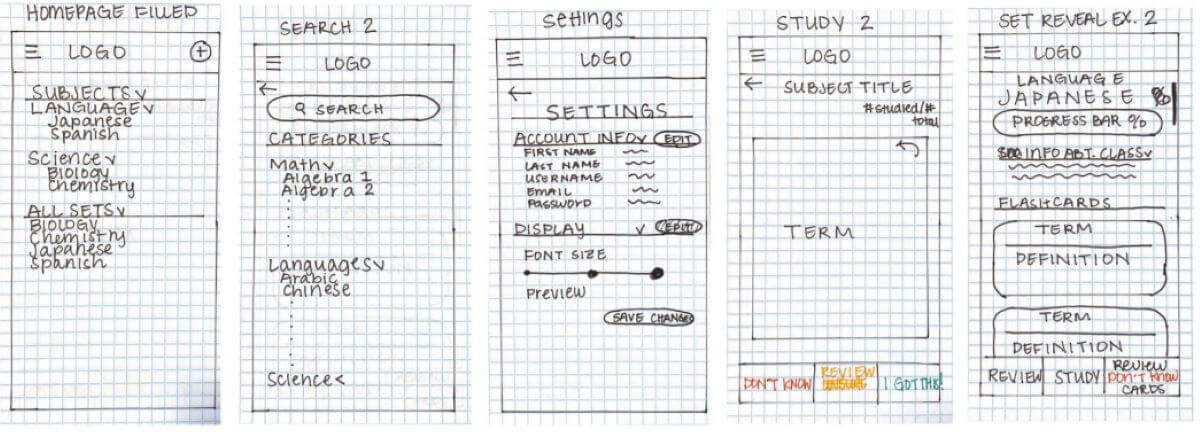 HOMEPAGE FILLED
☰ LOGO +
SUBJECTS v
LANGUAGE v
Japanese
Spanish
Science v
Biology
Chemistry
ALL SETS v
Biology
Chemistry
Japanese
Spanish
SEARCH 2
☰ LOGO
←
SEARCH
CATEGORIES
Math v
Algebra 1
Algebra 2
Languages v
Arabic
Chinese
Science <
Settings
☰ LOGO
←
SETTINGS
ACCOUNT INFO v EDIT
FIRST NAME
LAST NAME
USERNAME
EMAIL
PASSWORD
DISPLAY v EDIT
FONT SIZE
Preview
SAVE CHANGES
STUDY 2
☰ LOGO
← SUBJECT TITLE
#studied/#
total
TERM
DON'T KNOW
REVIEW
I GOT THIS!
SET REVEAL EX. 2
☰ LOGO
LANGUAGE
JAPANESE
PROGRESS BAR %
INFO ABT. CLASS v
FLASHCARDS
TERM
DEFINITION
TERM
DEFINITION
REVIEW
STUDY
REVIEW
DON'T KNOW
CARDS